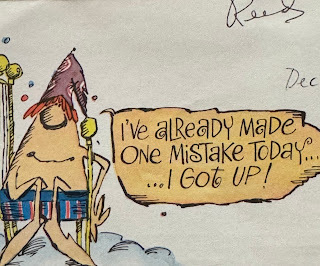 Reeds
Dec
I'VE ALREADY MADE
ONE MISTAKE TODAY...
...I GOT UP!